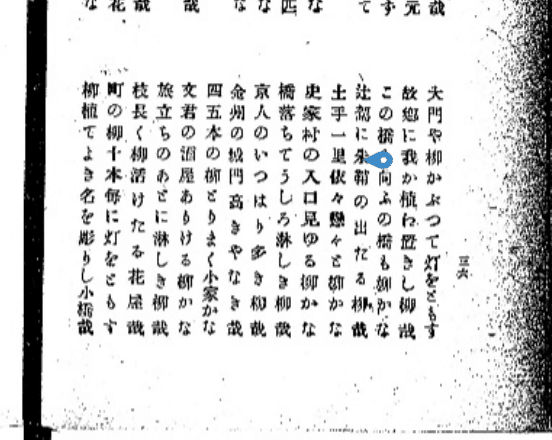 三六
大門や柳かぶつて灯をともす
故郷に我が植ゑ置きし柳哉
この橋 向ふの橋も柳かな
辻 に朱鞘の出たる柳哉
土手一里依々戀々と柳かな
史家村の入口見ゆる柳かな
橋落ちてうしろ淋しき柳哉
京人のいつはり多き柳哉
金州の城門高きやなぎ哉
四五本の柳とりまく小家かな
文君の酒屋ありける柳かな
旅立ちのあとに淋しき柳哉
枝長く柳活けたる花屋哉
町の柳十本毎に灯をともす
柳植てよき名を彫りし小橋哉